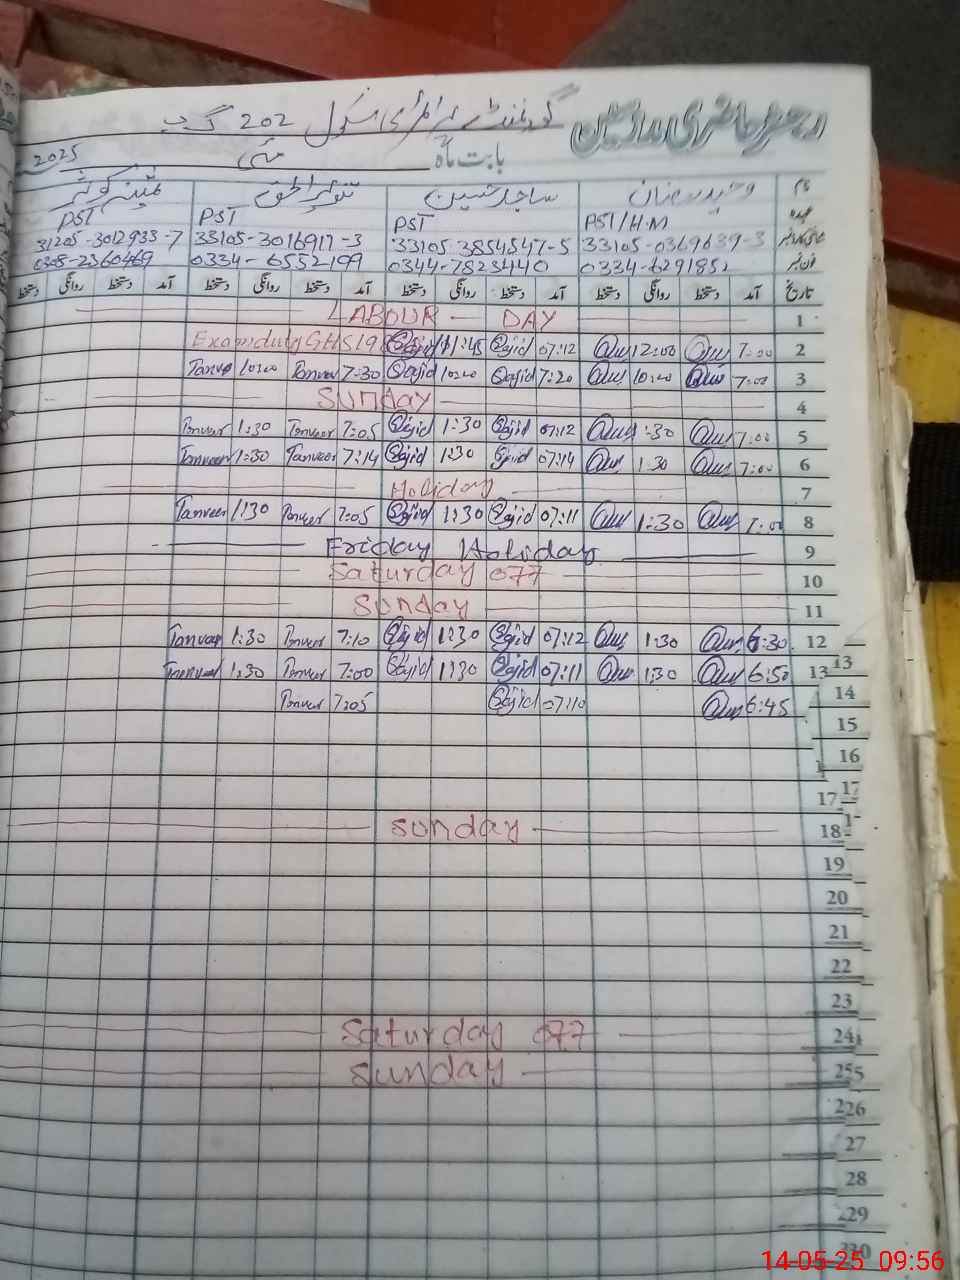 رجسٹر حاضری مدرسین گورنمنٹ پرائمری سکول 202 گ ب
بابت ماہ مئی 2025
نام وحید رمضان ساجد حسین تنویر الحق
عہدہ PST/H.M PST PST PST
شناختی کارڈ نمبر 33105-0369639-3 33105-3854547-5 33105-3016917-3 31205-3012933-7
فون نمبر 0334-6291852 0344-7823440 0334-6552199 0308-2360469
تاریخ آمد دستخط روانگی دستخط آمد دستخط روانگی دستخط آمد دستخط روانگی دستخط آمد دستخط روانگی دستخط
1 LABOUR DAY
2 7:00 12:00 07:12 Sajid 11:45 Sajid Exam duty GHS 19
3 7:00 10:20 7:20 Sajid 10:20 Sajid 7:30 Tanveer 10:20 Tanveer
4 SUNDAY
5 7:00 1:30 07:12 Sajid 1:30 Sajid 7:05 Tanveer 1:30 Tanveer
6 7:00 1:30 07:14 Sajid 1:30 Sajid 7:14 Tanveer 1:30 Tanveer
7 Holiday
8 7:00 1:30 07:11 Sajid 1:30 Sajid 7:05 Tanveer 1:30 Tanveer
9 Friday Holiday
10 Saturday off
11 Sunday
12 6:30 1:30 07:12 Sajid 1:30 Sajid 7:10 Tanveer 1:30 Tanveer
13 6:50 1:30 07:11 Sajid 1:30 Sajid 7:00 Tanveer 1:30 Tanveer
14 6:45 07:10 Sajid 7:05 Tanveer
15
16
17
18 Sunday
19
20
21
22
23
24 Saturday off
25 Sunday
26
27
28
29
30
14-05-25 09:56